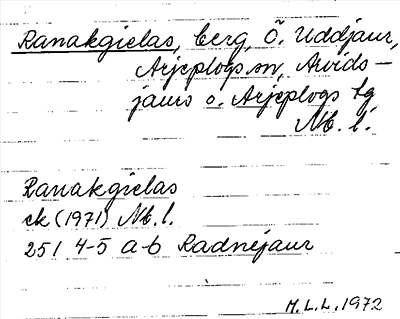 Ranakgielas, berg, Ö. Uddjaur,
Arjeplogs sn, Arvids-
jaurs o. Arjeplogs tg
Nb. l.
Ranakgielas
ek (1971) Nb. l.
25 I 4-5 a-b Radnejaur
M.L.L. 1972